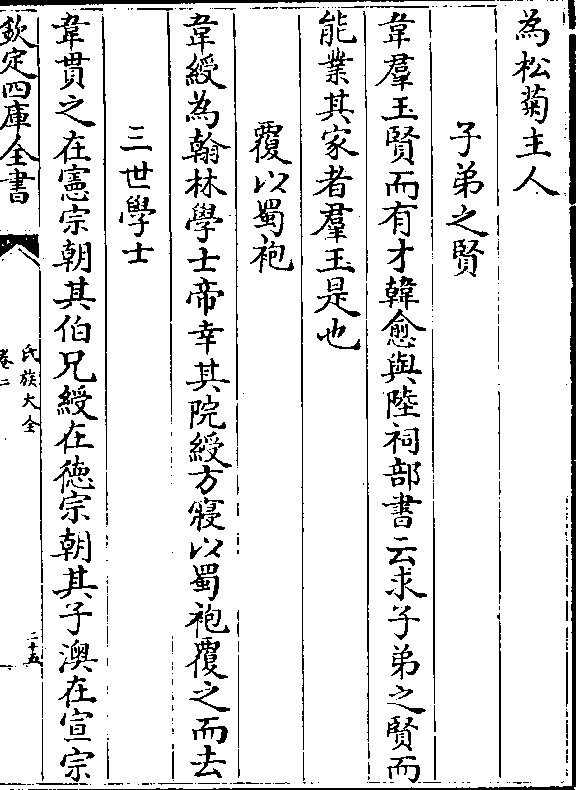 為松菊主人
子弟之賢
韋羣玉賢而有才韓愈與陸祠部書云求子弟之賢而
能業其家者羣玉是也
覆以蜀袍
韋綬為翰林學士帝幸其院綬方寢以蜀袍覆之而去
三世學士
韋貫之在憲宗朝其伯兄綬在德宗朝其子澳在宣宗
欽定四庫全書
氏族大全
卷二
二十五